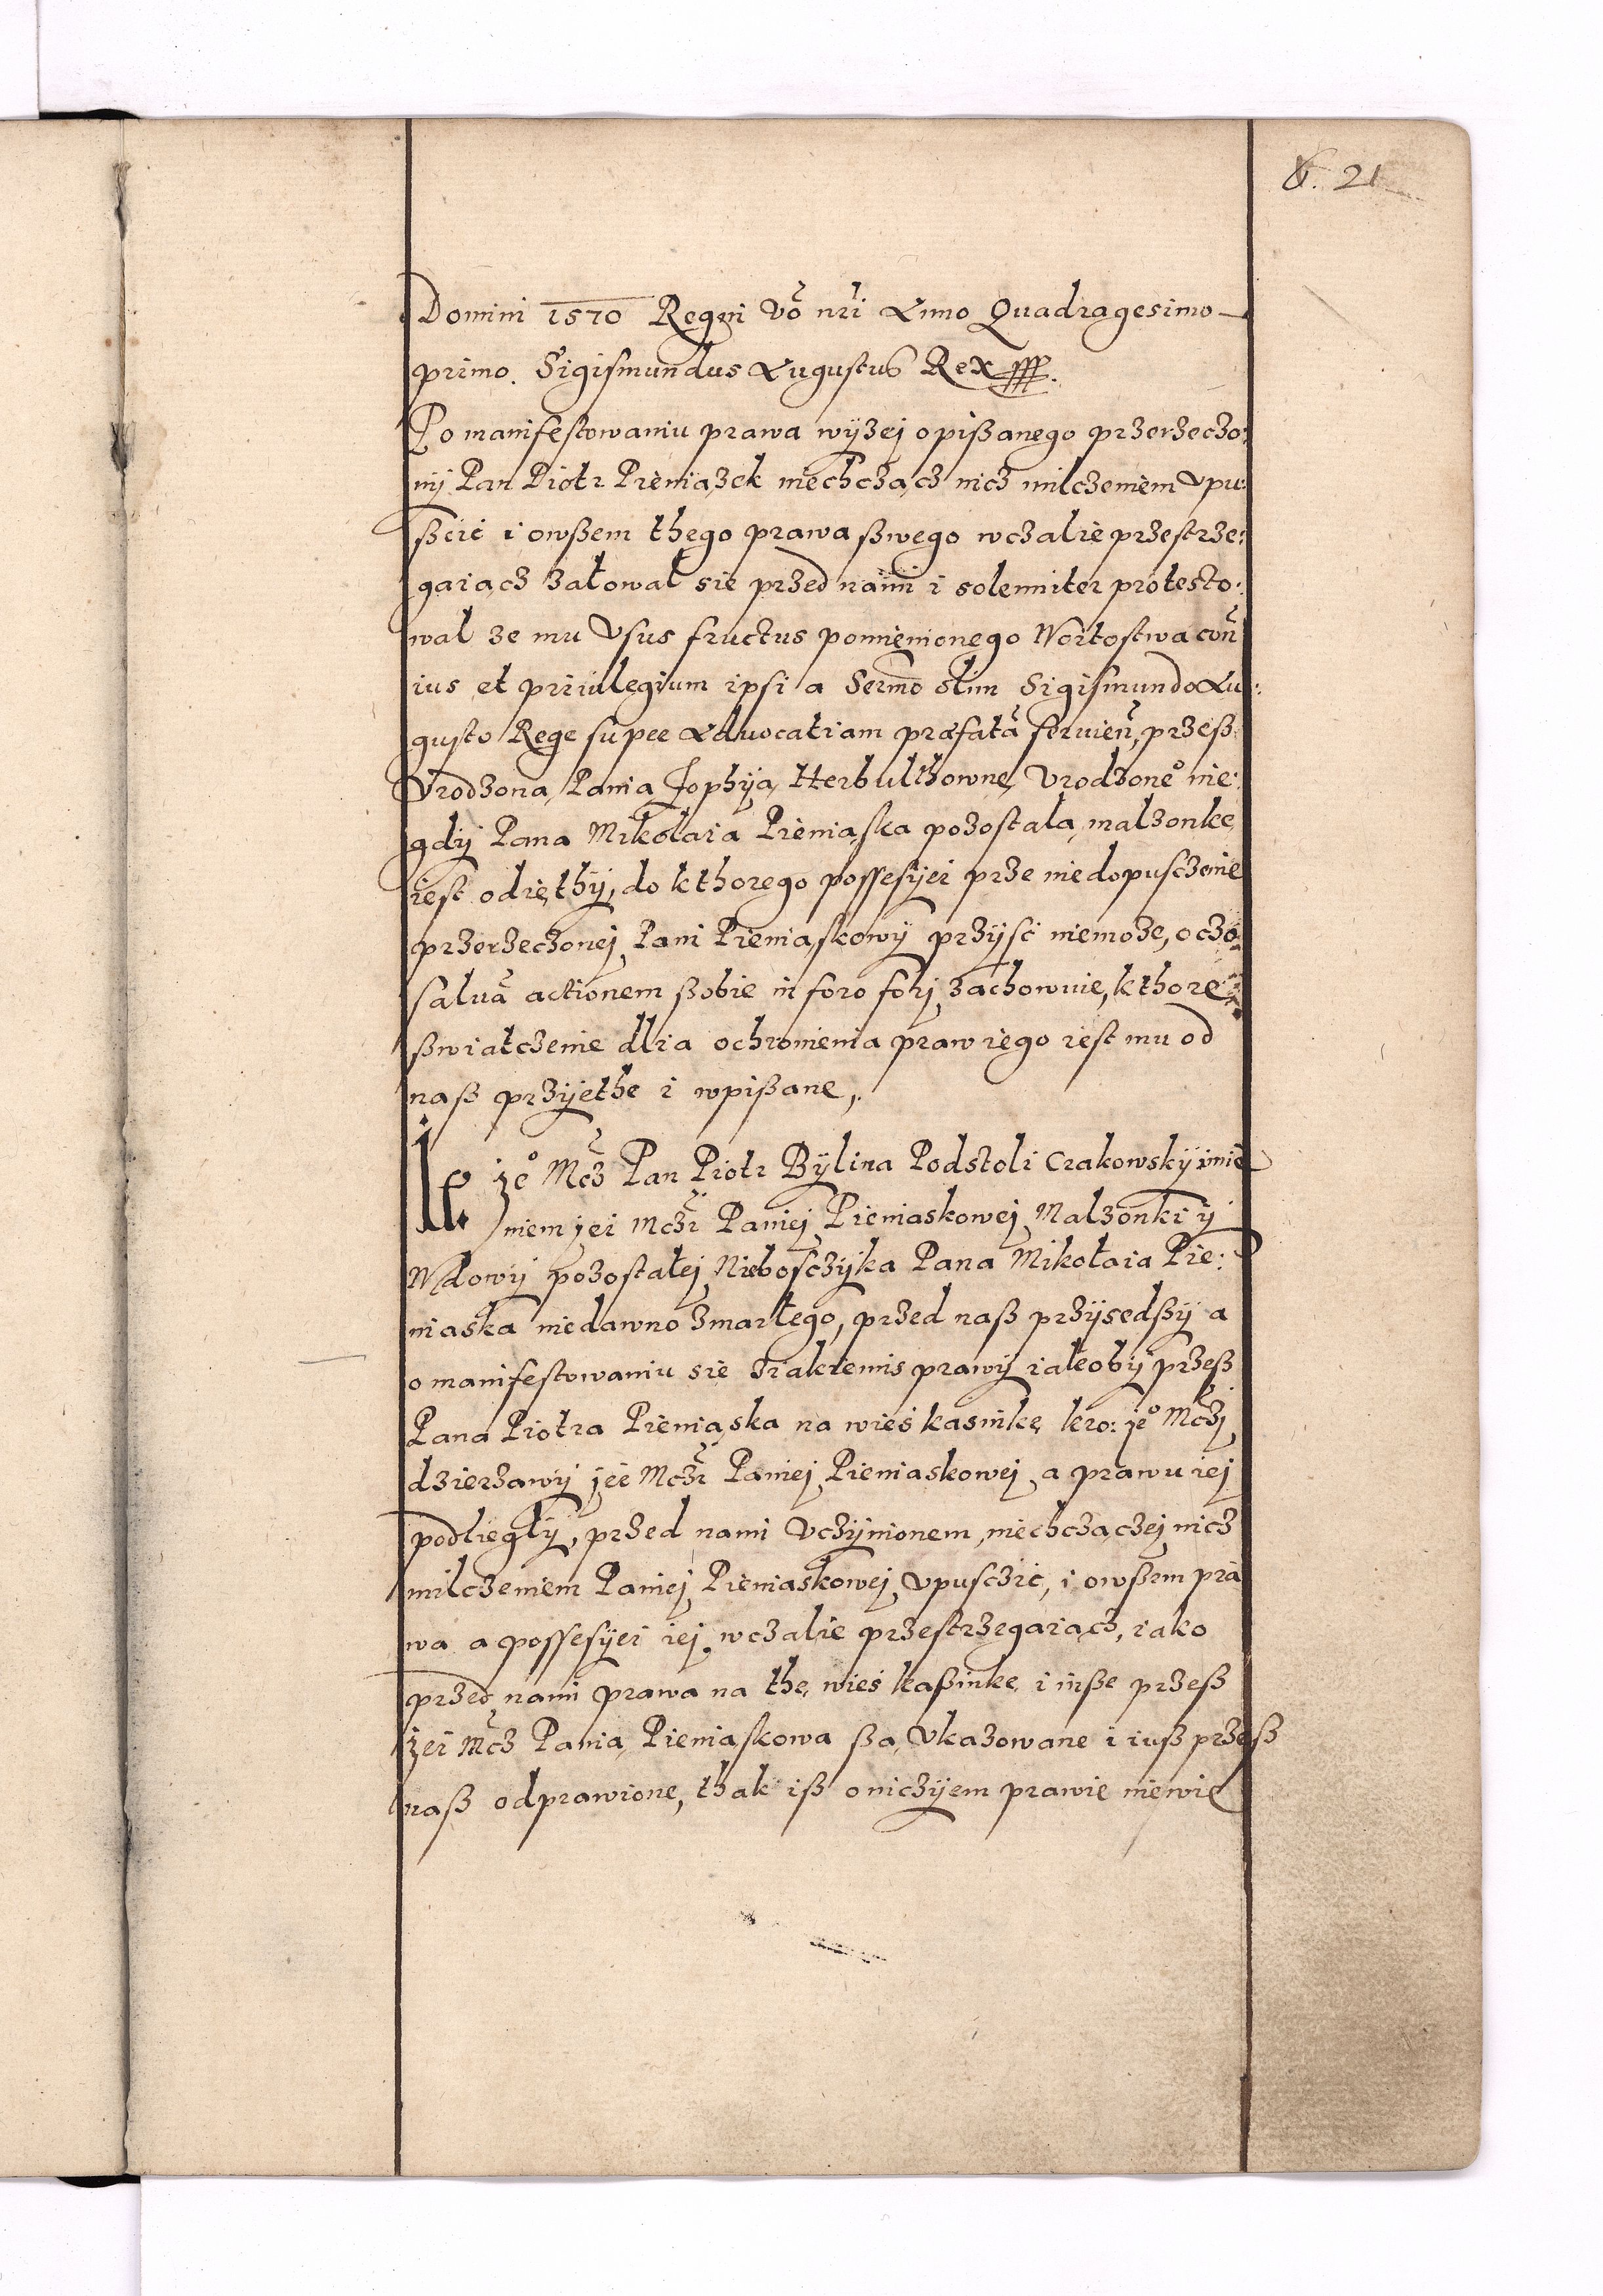 6. 21
Domini 1570 Regni vo nri Anno Quadragesimo
primo. Sigismundus Augustus Rex
Po manifestowaniu prawa wÿżej opißanego przerzeczo:
nÿ Pan Piotr Pieniążek niechcżącz nicz milczeniem vpu:
ßcić i owßem thego prawa ßwego wczalie przestrze:
gaiącz załował sie przed nami i solenniter protesto:
wal ze mu vsus fructus pomienionego Woitostwa con
ius et priuilegium ipsi a Sermo olim Sigismundo Au:
gusto Rege super Aduocatiam præfatã seruien, przeß
Vrodzoną Panią Zophÿą Herbulthownę Vrodzone° nie:
gdÿ Pana Mikołaia Pieniąska pozostałą malzonkę
iest odięthÿ, do kthorego possesÿei prze niedopuscżenie
przerzeczonej Pani Pieniąskowÿ przÿsć niemoże, oczo
saluã actionem ßobie in foro forj zachowuie, kthore
ßwiatczenie dlia ochronienia praw iego iest mu od
naß przÿjęthe i wpißane,.
Je° Mcz Pan Piotr Bÿlina Podstoli Crakowskÿ imie
niem jei Mczi Paniej Pieniaskowej Malzonki ÿ
Wdowÿ pozostałej Nieboscżÿka Pana Mikołaia Pie:
niaska niedawno zmarłego, przed naß przÿsedßÿ a
o manifestowaniu sie z iakiemis prawÿ iakobÿ przeß
Pana Piotra Pieniąska na wieś kasinkę kro: je° Mczj
dzierzawÿ jei Mczi Paniej Pieniaskowej a prawu iej
podliegłÿ, przed nami vczÿnionem, niechcząc̨zej nicz
milczeniem Paniej Pieniaskowej vpusczić, i owßem pra
wa a possesÿei iej wczalie przestrzegaiącz, iako
przed nami prawa na thę wieś kaßinkę i inße przeß
jei Mcz Panią Pieniąskowa ßą vkazowane i iuß przeß
naß odprawione, thak iß o niczÿjem prawie niewie